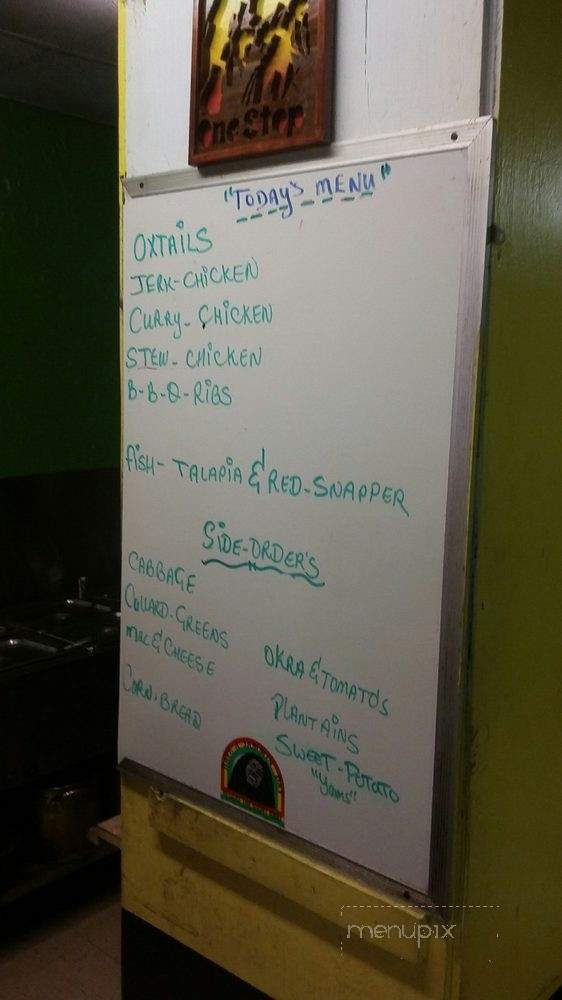 one stop
"TODAY'S MENU"
OXTAILS
JERK-CHICKEN
CURRY-CHICKEN
STEW-CHICKEN
B-B-Q-RIBS
FISH-TALAPIA & RED-SNAPPER
SIDE-ORDER'S
CABBAGE
COLLARD-GREENS
MAC & CHEESE
CORN-BREAD
OKRA & TOMATO'S
PLANTAINS
SWEET-POTATO
"Yams"
menupix